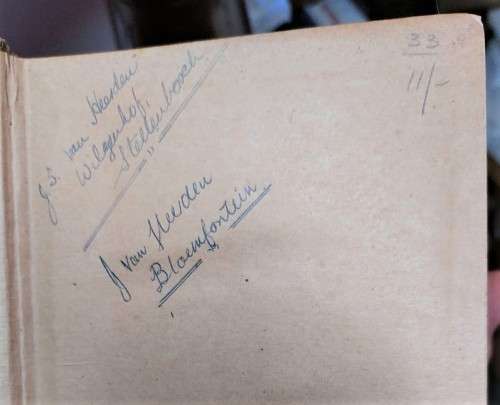 33
11/-
J.S. van Heerden
Wilgenhof,
Stellenbosch
J van Heerden
Bloemfontein